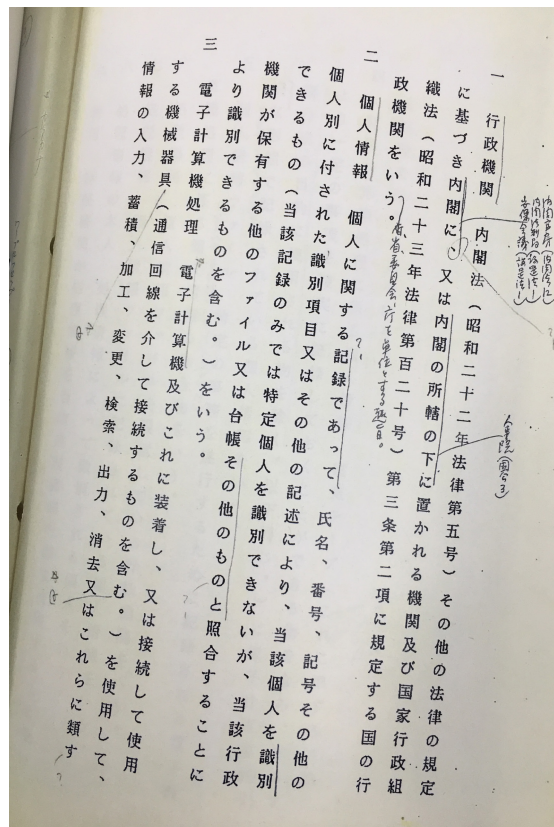 一　行政機関　内閣法（昭和二十二年法律第五号）その他の法律の規定
に基づき内閣に、又は内閣の所轄の下に置かれる機関及び国家行政組
織法（昭和二十三年法律第百二十号）第三条第二項に規定する国の行
政機関をいう。
二　個人情報　個人に関する記録であって、氏名、番号、記号その他の
個人別に付された識別項目又はその他の記述により、当該個人を識別
できるもの（当該記録のみでは特定個人を識別できないが、当該行政
機関が保有する他のファイル又は台帳その他のものと照合することに
より識別できるものを含む。）をいう。
三　電子計算機処理　電子計算機及びこれに装着し、又は接続して使用
する機械器具（通信回線を介して接続するものを含む。）を使用して、
情報の入力、蓄積、加工、変更、検索、出力、消去又はこれらに類す